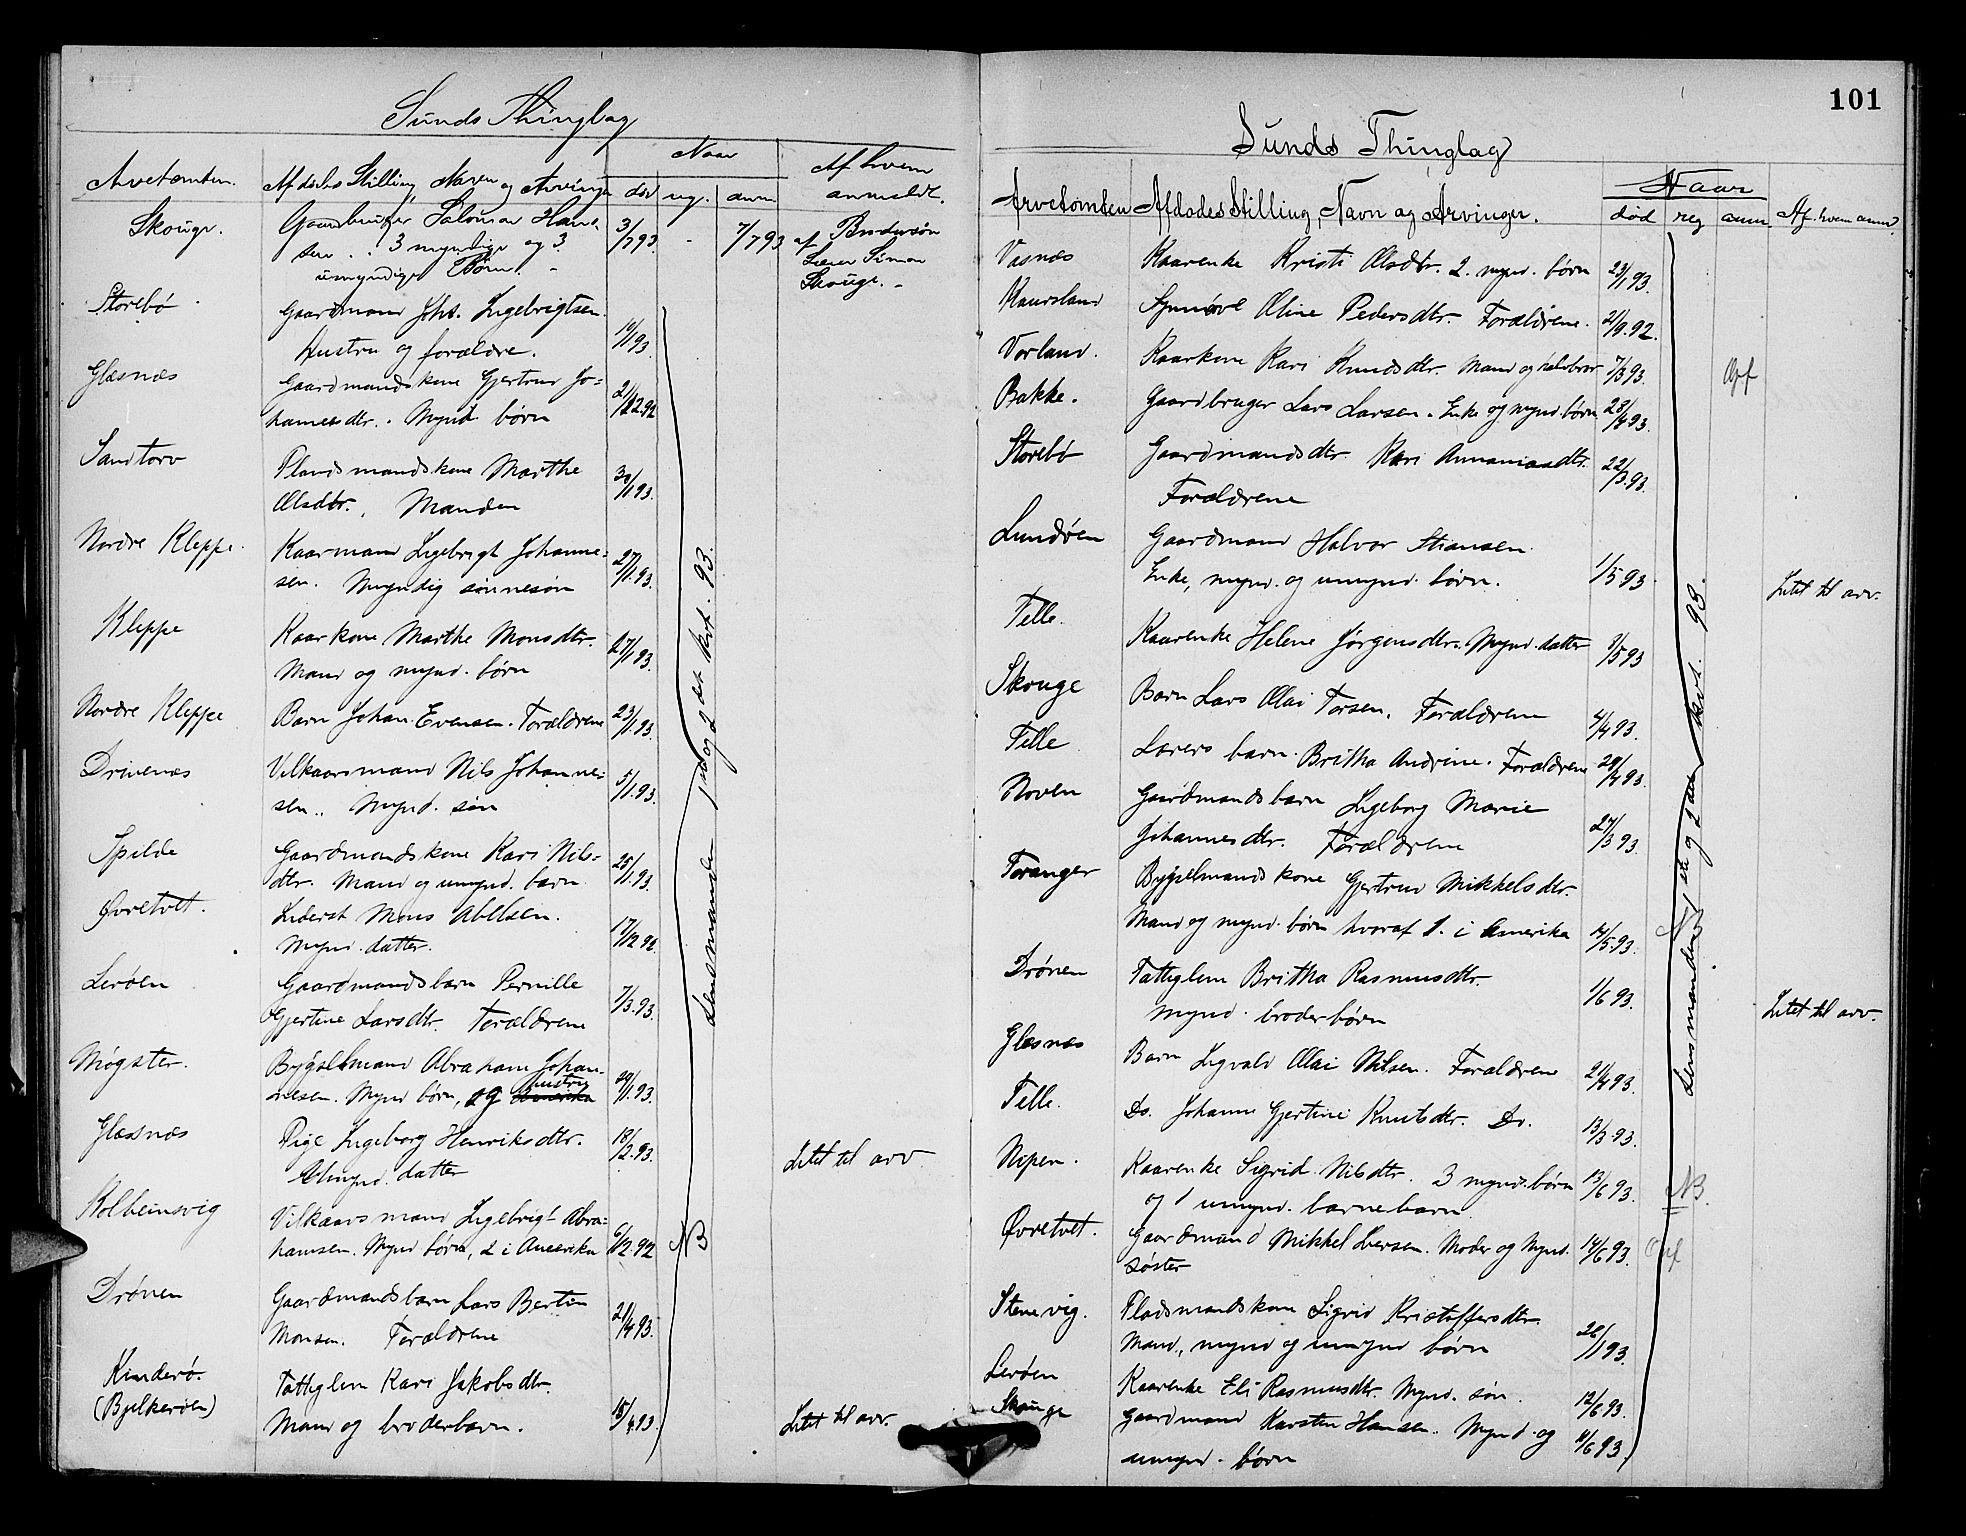 Sunds Thinglag
Arvetomten. Afdødes Stilling, Navn og Arvinger Naar død reg. anm Af hvem anmeldt.
Skouge. Gaardbruger Salomon Han- 3/7 93 - 7/7 93 af Andersøn
sen . . 3 myndige og 3 Lærer Simon
umyndige Børn. - Skouge. -
Storebø Gaardmand Johs. Ingebrigtsen.
Hustru og forældre. 10/1 93.
Glæsnæs Gaardmandskone Gjertrud Jo-
hannesdtr. Mynd børn 21/12 92
Sandtorv Pladsmandskone Marthe
Olsdtr., Manden 30/1 93.
Nordre Kleppe. Kaarmand Ingebrigt Johanne-
sen. Myndig sønnesøn 27/1. 93.
Kleppe Kaarkone Marthe Monsdtr.
Mand og mynd. børn 27/1 93.
Nordre Kleppe Barn Johan Evensen. Forældrene 23/1. 93.
Drivenæs Vilkaarsmand Nils Johanne-
sen.. Mynd. søn 5/1. 93.
Spilde Gaardmandskone Kari Nils-
dtr. Mand og umynd. børn 25/1. 93.
Øvretvet. Inderst Mons Abelsen.
Mynd. datter. 17/12 92
Lerøen Gaardmandsbarn Pernille
Gjertine Larsdtr. Forældrene 7/3. 93.
Møgster. Bygselmand Abraham Johan-
nesen. Mynd børn, og hustru 29/1. 93.
Glæsnæs Pige Ingeborg Henriksdtr.
Umynd. datter 18/2. 93. Litet til arv
Kolbeinsvig Vilkaarsmand Ingebrigt Abra-
hamsen. Mynd børn, 2 i Amerika 6/12. 92
Drønen Gaardmandsbarn Lars Bertin
Monsen. Forældrene 21/4 93.
Kinderø. Fattiglem Kari Jakobsdtr.
(Bjelkerøen) Mand og broderbarn. 15/4. 93. Litet til arv.
NB Lensmanden 1ste og 2det kvt. 93.
101
Sunds Thinglag
Arvetomten Afdødes Stilling, Navn og Arvinger. Naar død reg anm. Af hvem anm.
Vasnæs Kaarenke Kristi Olsdtr. 2. mynd. børn 23/1 93.
Haursland Synnøve Oline Pedersdtr. Forældrene. 21/9. 92.
Vorland. Kaarkone Kari Knudsdtr. Mand og halvbror 7/3 93. Opf
Bakke. Gaardbruger Lars Larsen. Enke og mynd. børn 28/4 93.
Storebø Gaardmandsdtr. Kari Annaniasdtr. 22/3. 93.
Forældrene
Lundøen Gaardmand Halvor Hansen.
Enke, mynd. og umynd. børn. 1/5 93. Litet til arv.
Telle. Kaarenke Helene Jørgensdtr. Mynd. datter 3/5 93
Skouge Barn Lars Olai Torsen. Forældrene 4/4 93.
Telle Lærers barn. Britha Andrine. Forældrene 29/4 93.
Hoven Gaardmandsbarn Ingeborg Marie
Johannesdtr. Forældrene 27/3 93.
Toranger Bygselmandskone Gjertrud Mikkelsdtr.
Mand og mynd. børn hvoraf 1. i Amerika 14/5. 93.
Drønen Fattiglem Britha Rasmusdtr.
mynd. broderbørn 1/6 93. Litet til arv.
Glæsnæs Barn Sigvald Olai Nilsen. Forældrene 21/4 93.
Telle. Do. Johanne Gjertine Knutsdtr. Do. 13/3. 93.
Nipen. Kaarenke Sigrid Nilsdtr. 3 mynd. børn 13/6 93. NB.
og 1 umynd. barnebarn
Øvretvet. Gaardmand Mikkel Iversen. Moder og Mynd. 14/6 93. Opf
søster
Stenevig. Pladsmandskone Sigrid Kristoffersdtr.
Mand, mynd og umynd børn 26/1 93.
Lerøen Kaarenke Eli Rasmusdtr. Mynd. søn. 12/6 93.
Skouge Gaardmand Karsten Hansen. Mynd. og 11/6 93.
umynd. børn
Lensmanden 1ste og 2det kvt. 93.